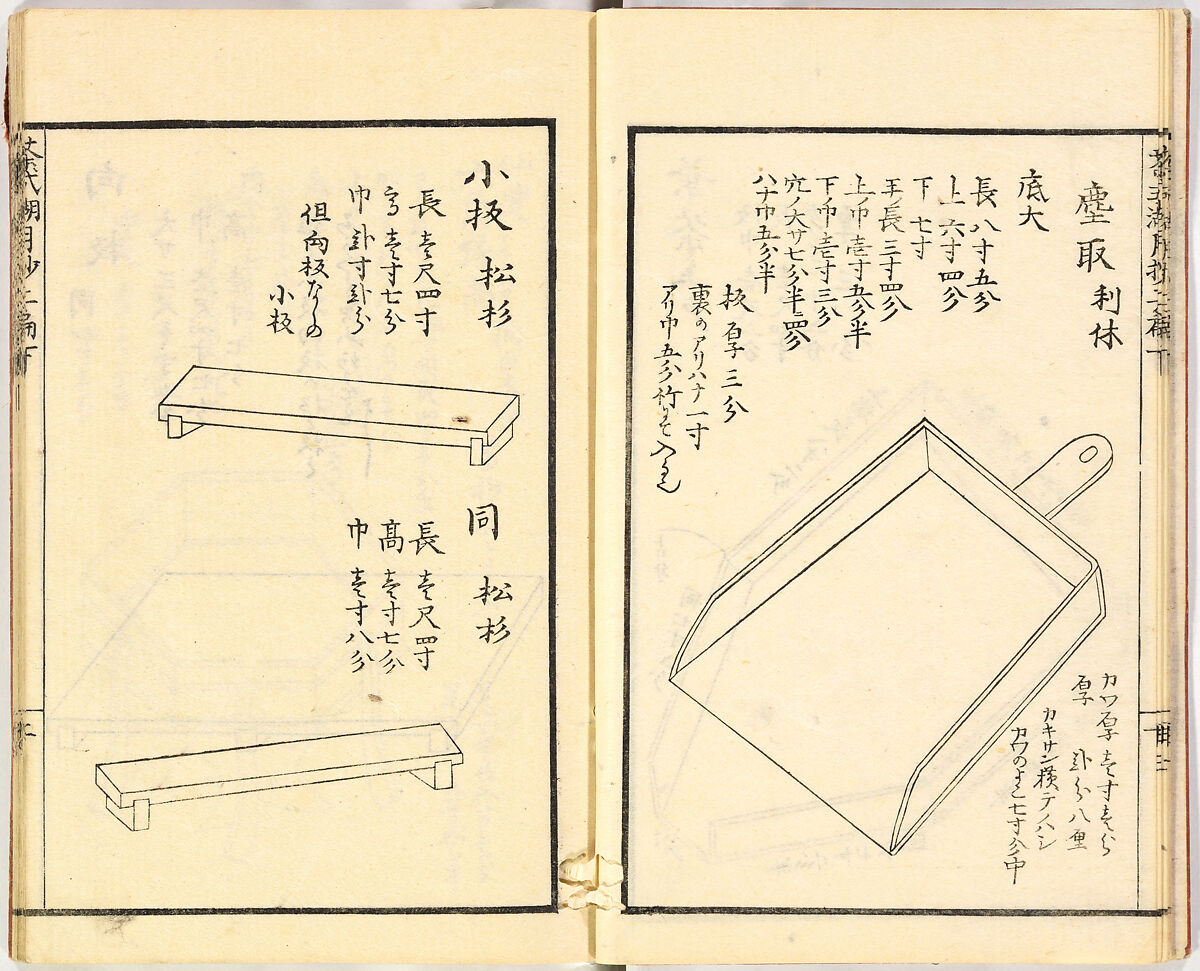 塵取 利休
底大
長八寸五分
上六寸四分
下七寸
手ノ長三寸四分
上ノ巾壱寸五分半
下ノ巾壱寸三分
穴ノ大サ七分半ニ四分
ハナ巾五分半
板厚三分
裏のアリハナ一寸
アリ巾五分竹にて入
カワ厚壱寸壱分
厚 弐分八厘
カキサシ横テノハシ
カワのよこ七寸
小板 松杉
長壱尺四寸
高壱寸七分
巾弐寸弐分
但向板ならの
小板
同 松杉
長壱尺四寸
高壱寸七分
巾壱寸八分